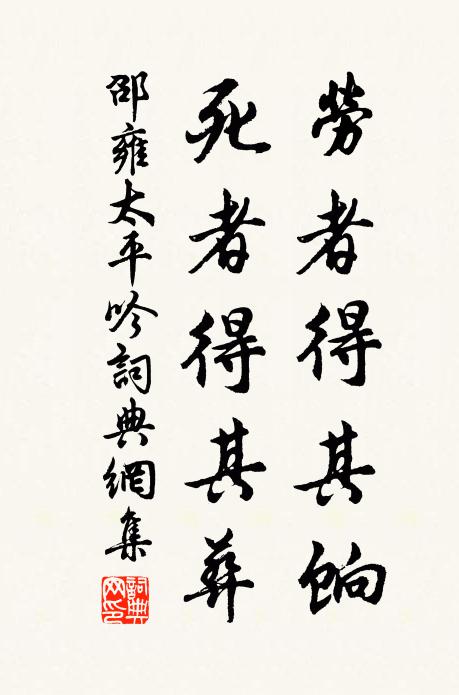 勞者得其餉
死者得其葬
邵雍太平吟詞典網集
詞典網印